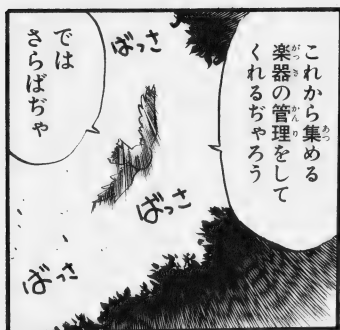 これから集める
楽器の管理をして
くれるぢゃろう
ばっさ
では
さらばぢゃ
ばっさ
ばっさ